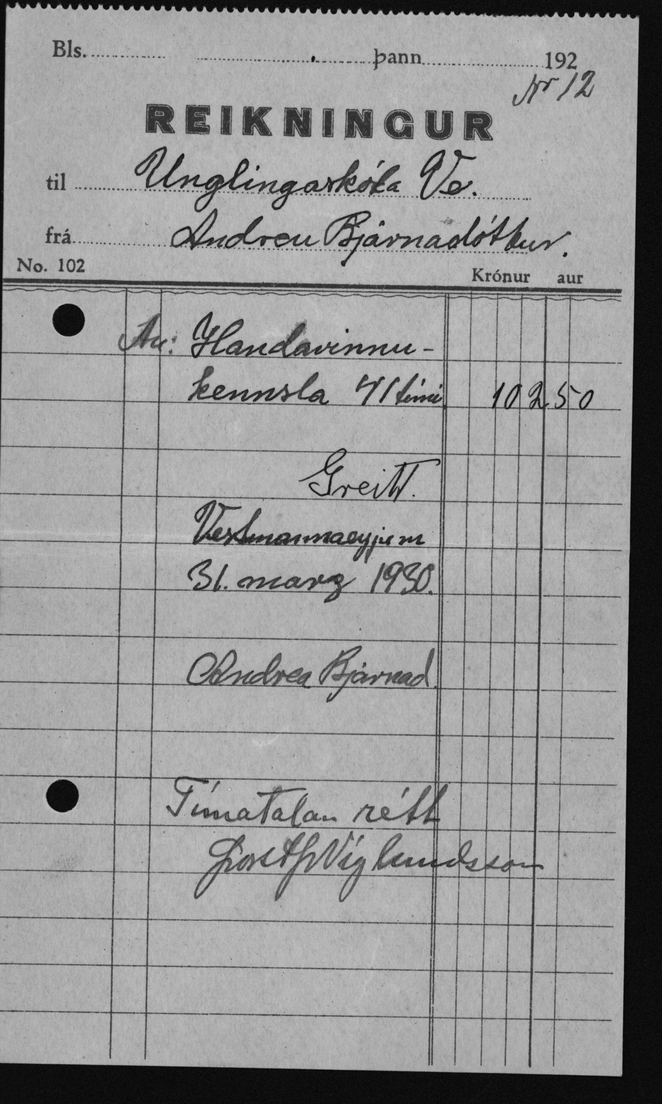 Bls. þann 192
Nr 12
REIKNINGUR
til Unglingaskóla Ve.
frá Andreu Bjarnadóttur.
No. 102
Krónur aur
Handavinnu-
kennsla 41 tími 102 50
Greitt.
Vestmannaeyjum
31. marz 1930.
Andrea Bjarnad.
Tímatalan rétt
Þorst Þ Víglundsson